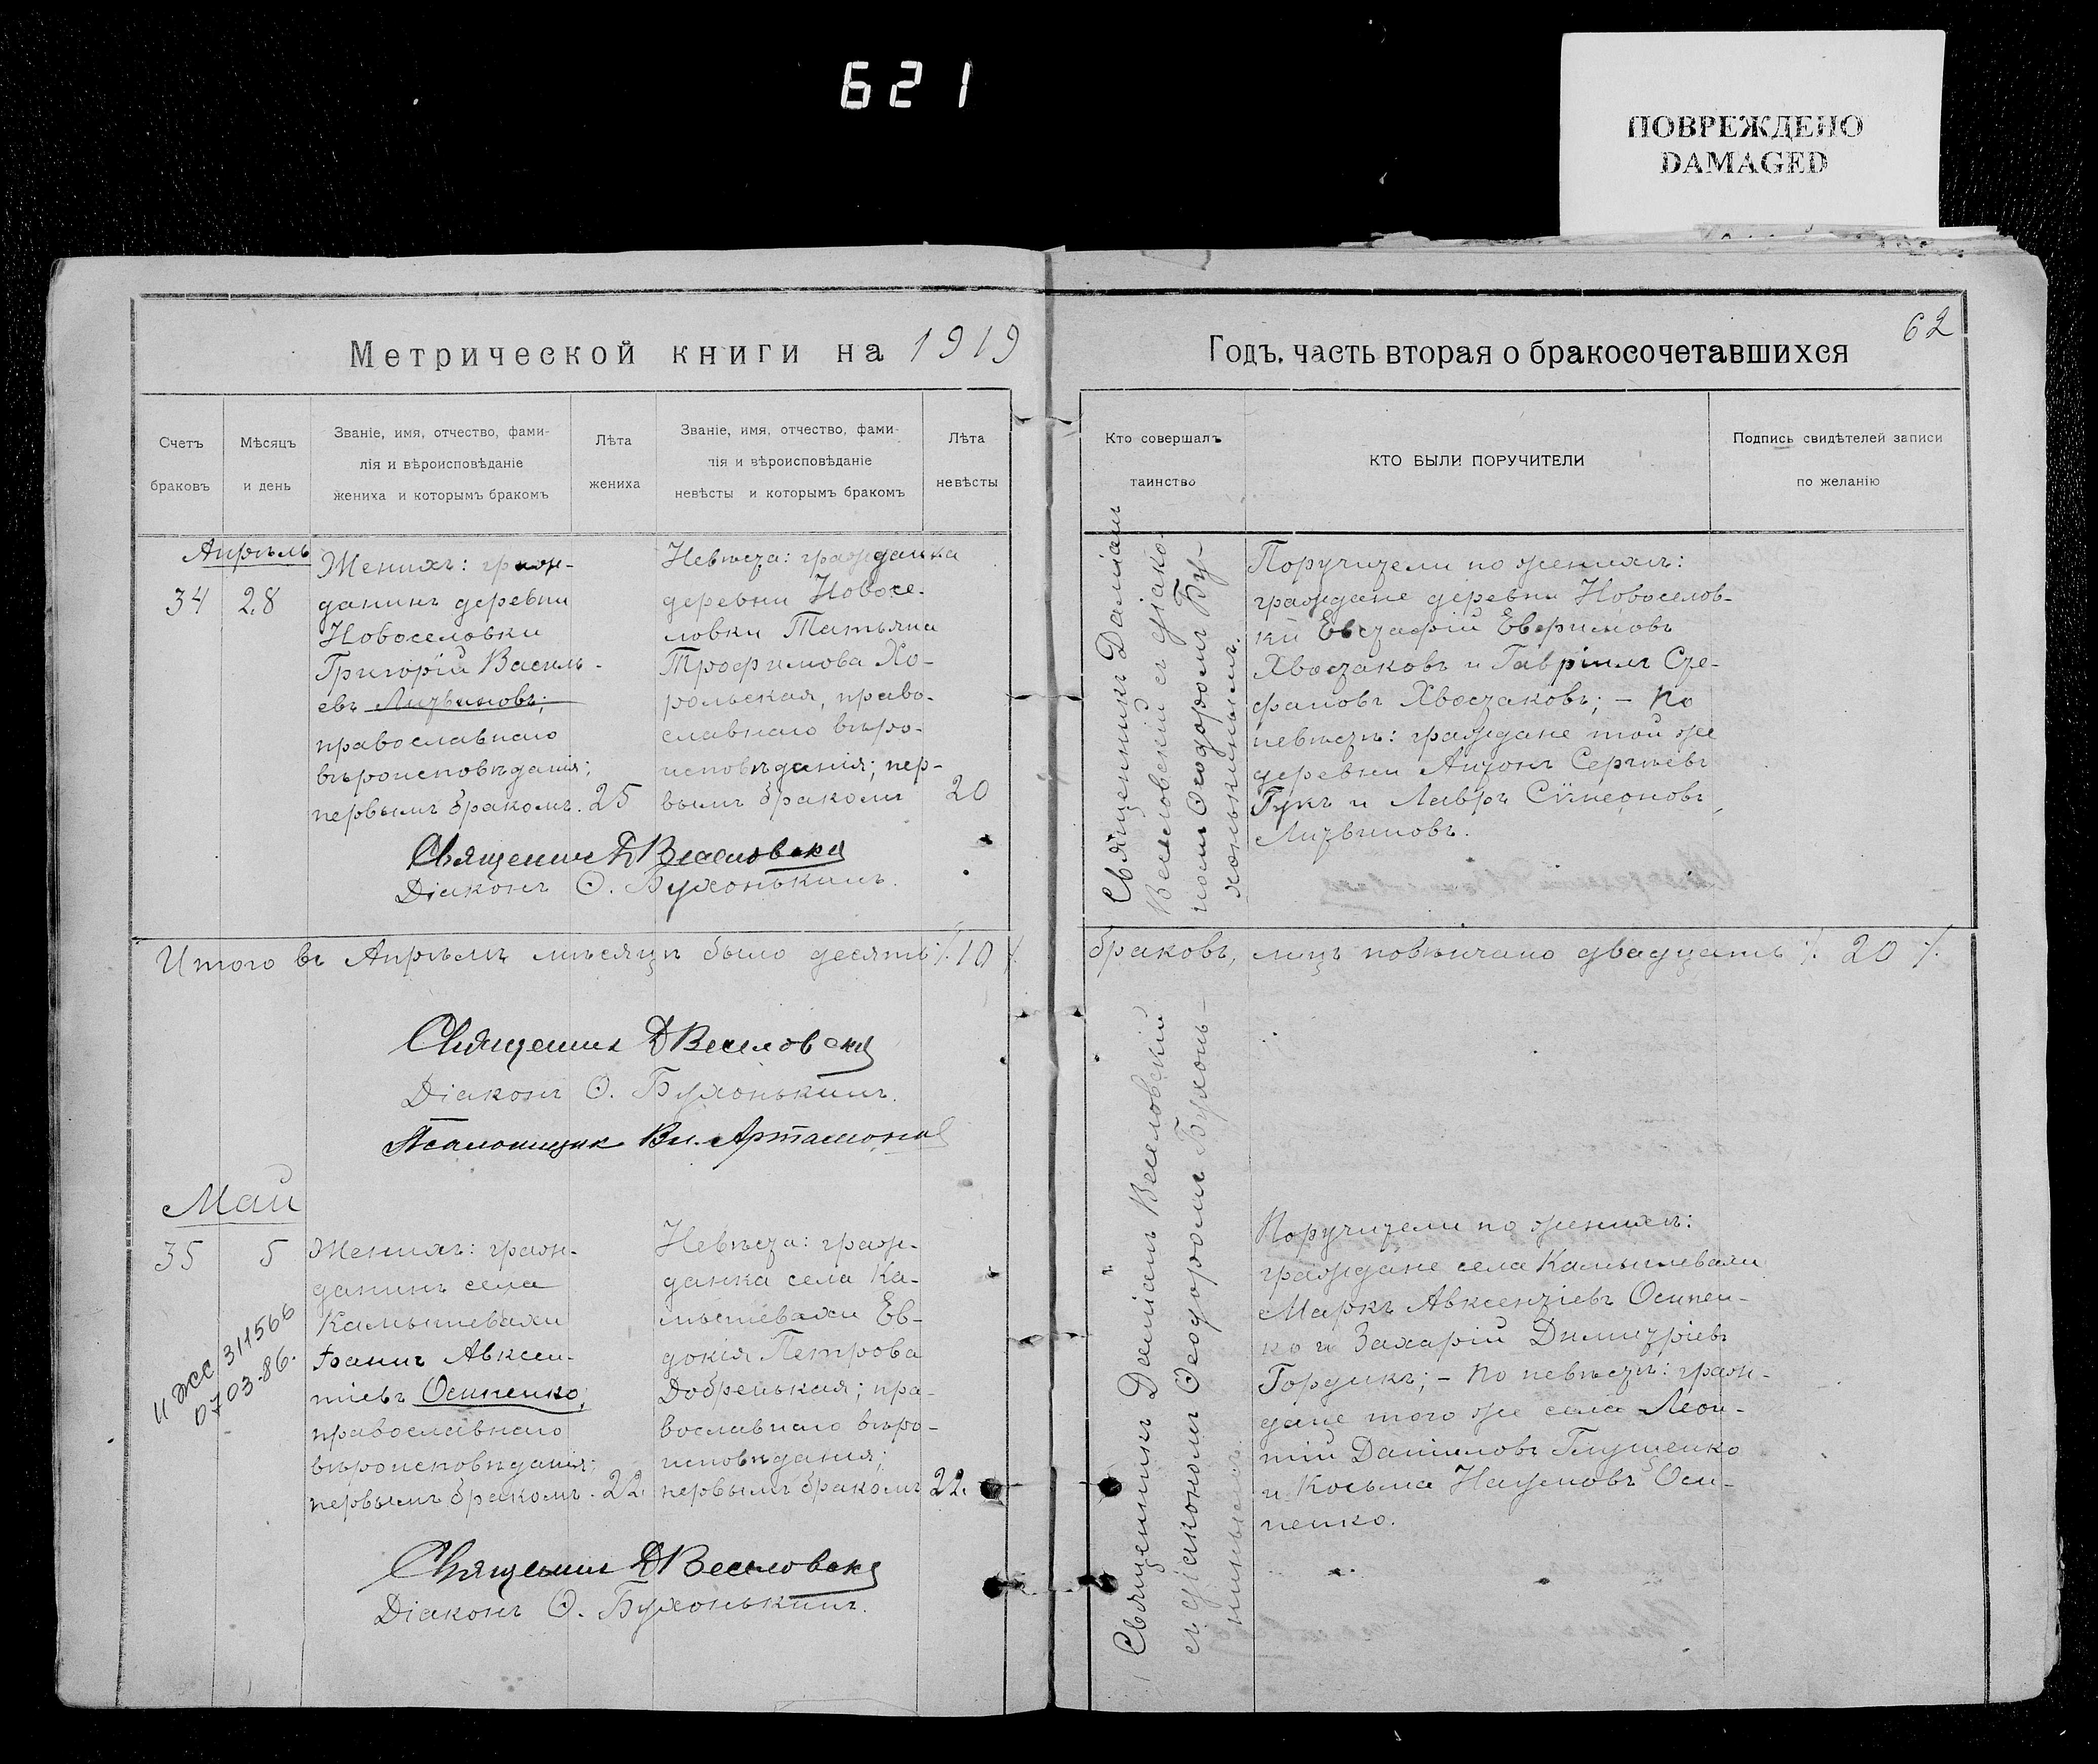 621
ПОВРЕЖДЕНО
DAMAGED
Метрической книги на 1919
Годъ, часть вторая о бракосочетавшихся
62
Счетъ
браковъ
Мѣсяцъ
и день
Званіе, имя, отчество, фами-
лія и вѣроисповѣданіе
жениха и которымъ бракомъ
Лѣта
жениха
Званіе, имя, отчество, фами-
лія и вѣроисповѣданіе
невѣсты и которымъ бракомъ
Лѣта
невѣсты
Кто совершалъ
таинство
КТО БЫЛИ ПОРУЧИТЕЛИ
Подпись свидѣтелей записи
по желанію
Апрѣль
34 28
Женихъ: граж-
данинъ деревни
Новоселовки
Григорій Василь-
евъ Литвиновъ;
православнаго
вѣроисповѣданія;
первымъ бракомъ. 25
Невѣста: гражданка
деревни Новосе-
ловки Татьяна
Трофимова Хо-
рольская, право-
славнаго вѣро-
исповѣданія; пер-
вымъ бракомъ 20
Священникъ Даміанъ
Веселовскій съ діако-
номъ Ѳеодоромъ Бу-
хонькинымъ.
Поручители по женихѣ:
граждане деревни Новоселов-
ки Евстафій Евфимовъ
Хвостаковъ и Гавріилъ Сте-
фановъ Хвостаковъ; – По
невѣстѣ: граждане той же
деревни Антонъ Сергѣевъ
Гукъ и Лавръ Сѵмеоновъ
Литвиновъ.
Священник Д Веселовскій
Діаконъ Ѳ. Бухонькинъ.
Итого въ Апрѣлѣ мѣсяцѣ было десять ⁒ 10 ⁒ браковъ, лицъ повѣнчано двадцать ⁒ 20 ⁒
Священник Д Веселовскій
Діаконъ Ѳ. Бухонькинъ.
Псаломщик Вл. Артамонов
Май
35 5
Женихъ: граж-
данинъ села
Камышевахи
Іоаннъ Авксен-
тіевъ Осипенко;
православнаго
вѣроисповѣданія;
первымъ бракомъ. 22.
Невѣста: граж-
данка села Ка-
мышевахи Ев-
докія Петрова
Добренькая; пра-
вославнаго вѣро-
исповѣданія;
первымъ бракомъ 22.
II ЖС 311566
0703-86.
Священникъ Даміанъ Веселовскій
съ діакономъ Ѳеодоромъ Бухонь-
кинымъ.
Поручители по женихѣ:
граждане села Камышевахи
Маркъ Авксентіевъ Осипен-
ко и Захарій Димитріевъ
Гордикъ; – По невѣстѣ: граж-
дане того же села Леон-
тій Даніиловъ Глущенко
и Косьма Наумовъ Оси-
пенко.
Священник Д Веселовскій
Діаконъ Ѳ. Бухонькинъ.